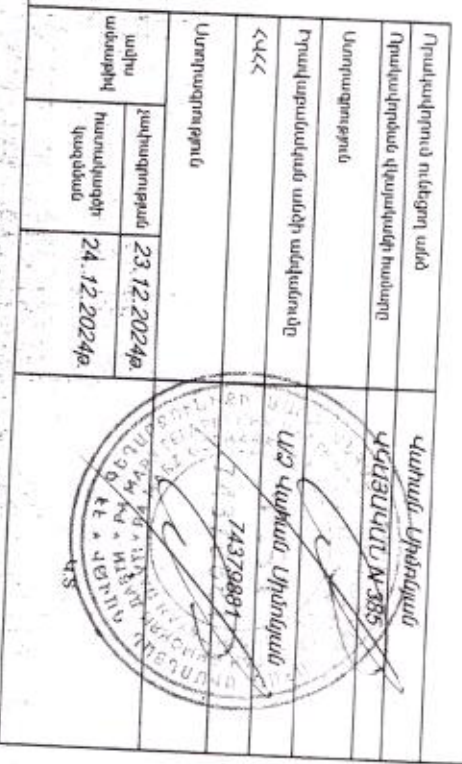 Որակավորում ունեցող անձ
Վահան Սիմոնյան
Որակավորման վկայականի համարը
ՎԿԱՅԱԿԱՆ N 385
Ստորագրություն
Իրավաբանական անձի անվանումը
ԱՁ Վահան Սիմոնյան
ՀՎՀՀ
74379881
Ստորագրություն
չափագրության
23.12.2024թ.
հատակագծի
կազմման
24.12.2024թ.
Կ.Տ